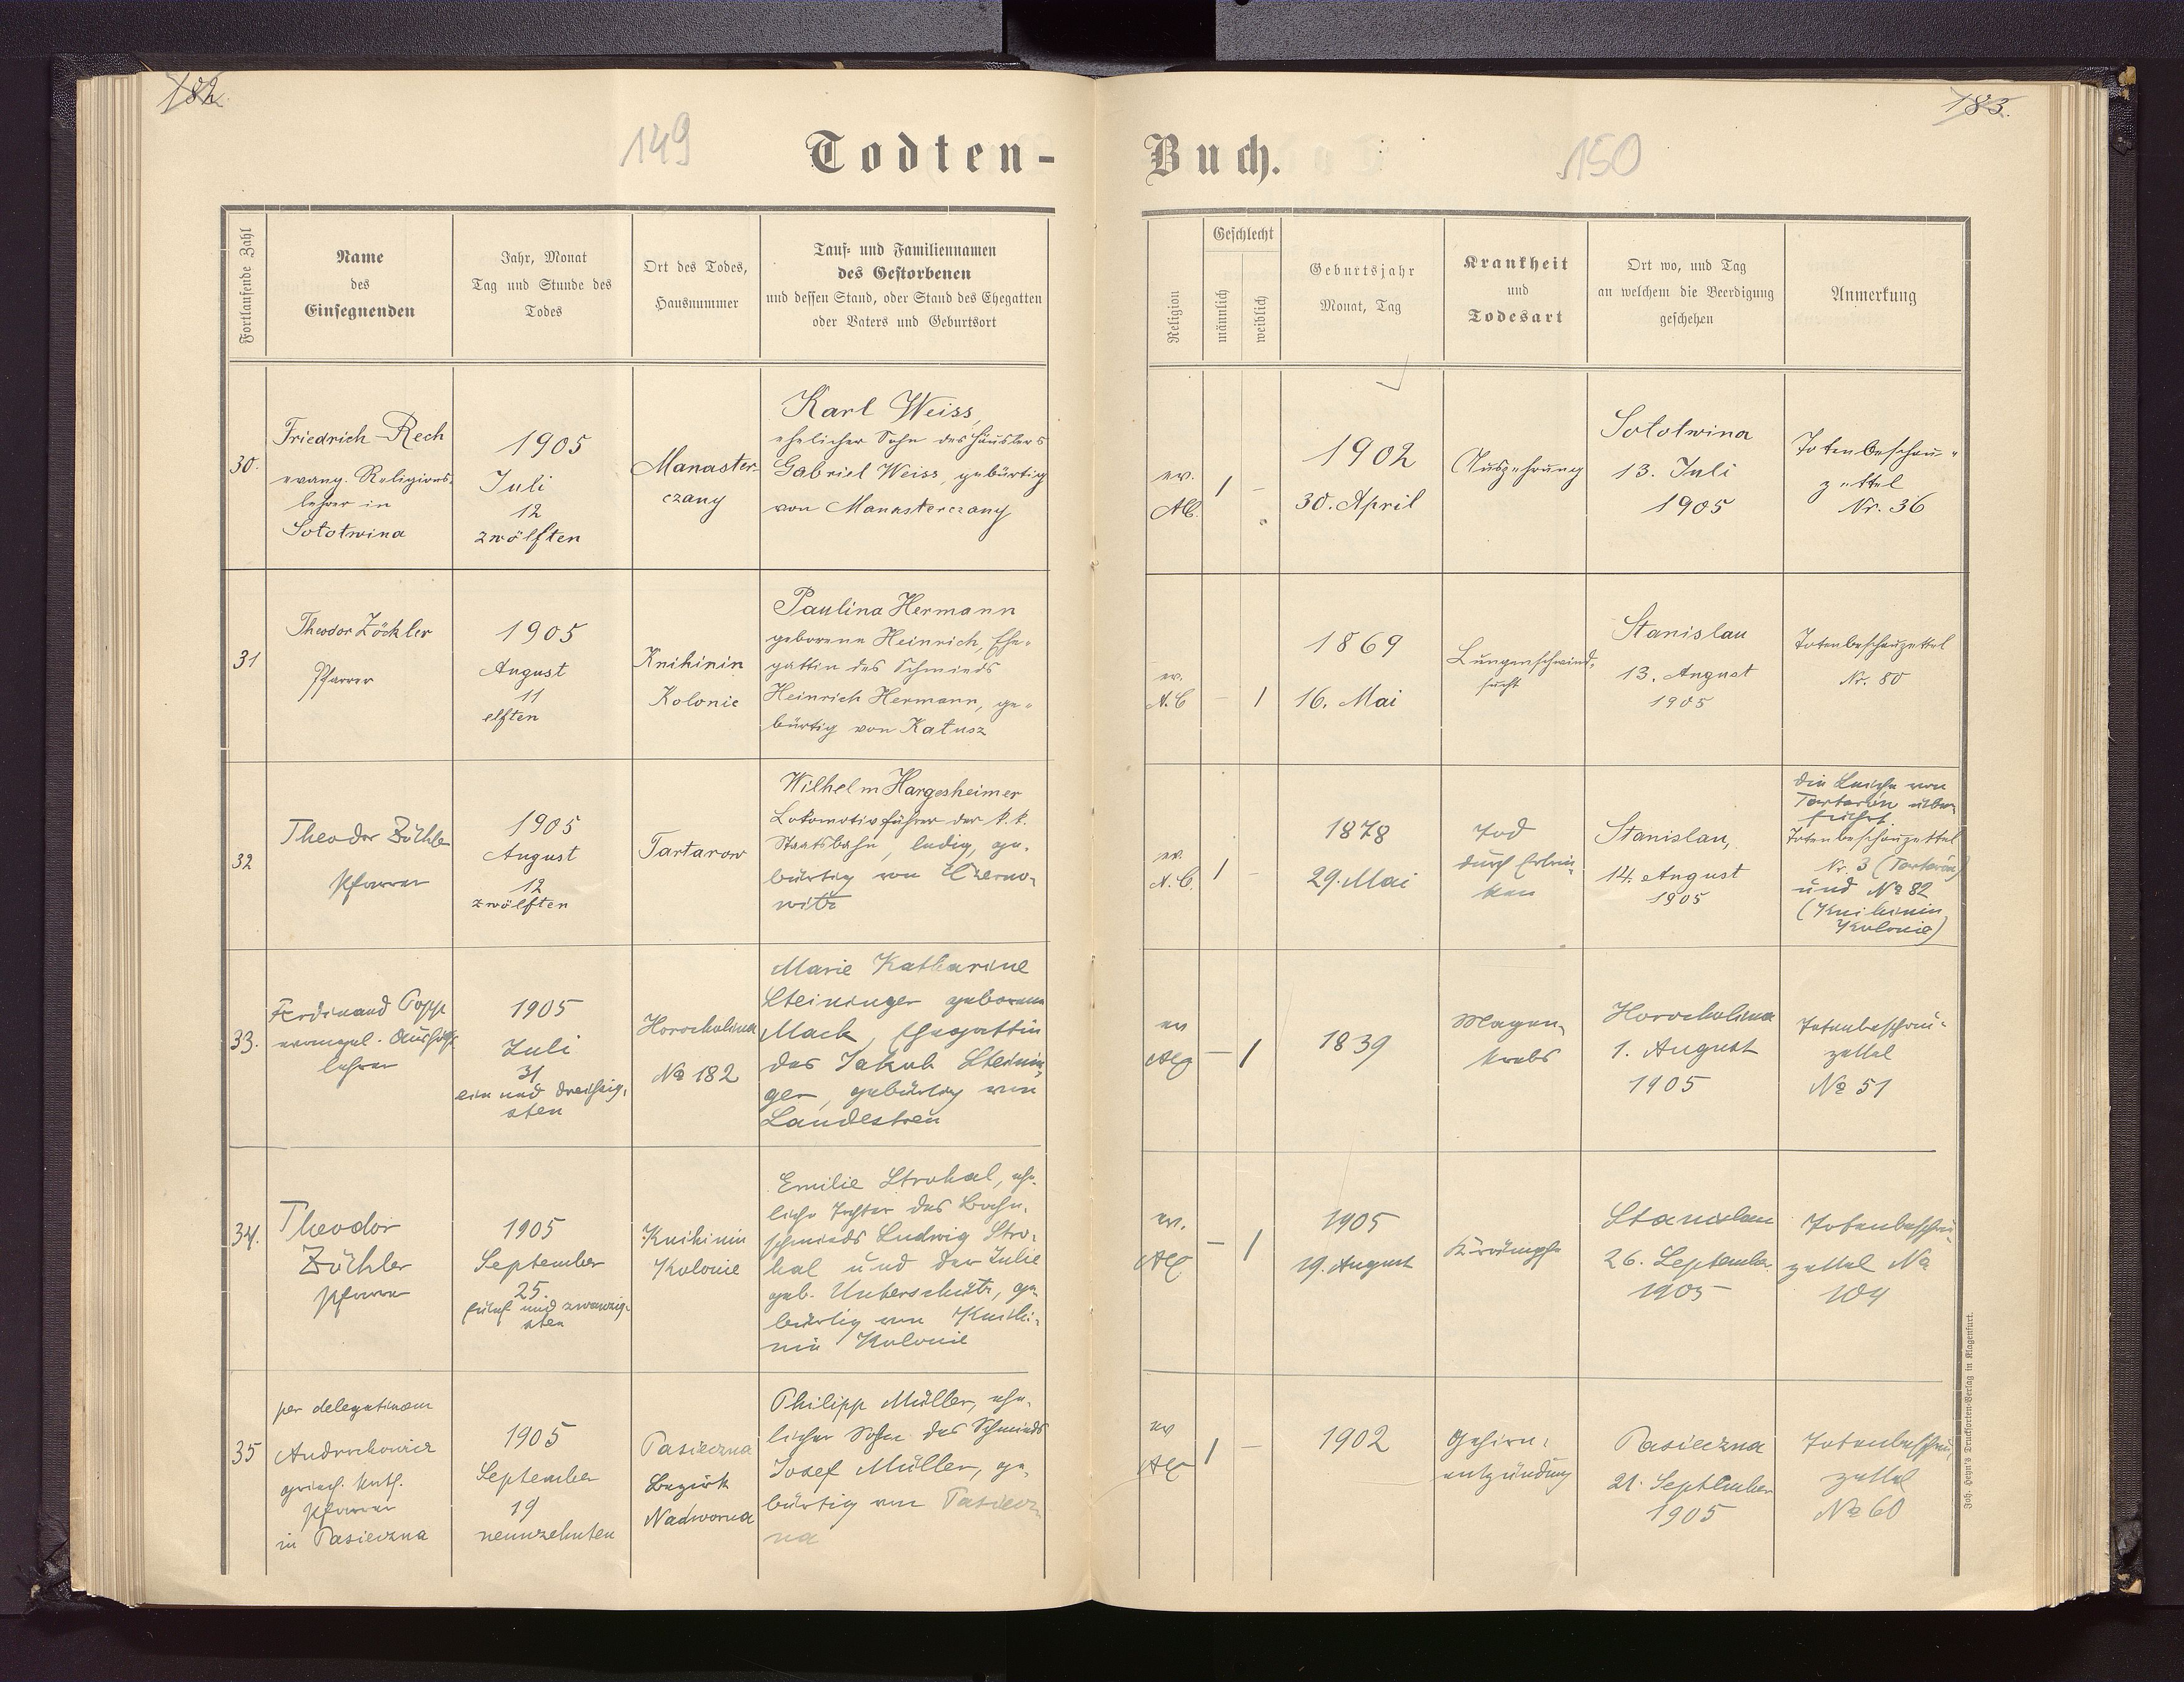 182.
183.
149
150
Todten-
Buch.
Fortlaufende Zahl
Name
des
Einsegnenden
Jahr, Monat
Tag und Stunde des
Todes
Ort des Todes,
Hausnummer
Tauf- und Familiennamen
des Gestorbenen
und dessen Stand, oder Stand des Ehegatten
oder Vaters und Geburtsort
Religion
Geschlecht
männlich
weiblich
Geburtsjahr
Monat, Tag
Krankheit
und
Todesart
Ort wo, und Tag
an welchem die Beerdigung
geschehen
Anmerkung
30.
Friedrich Rech
evang. Religions-
lehrer in
Sototwina
1905
Juli
12
zwölften
Manaster-
czany
Karl Weiss,
ehelicher Sohn des Häuslers
Gabriel Weiss, gebürtig
von Manasterczany
ev.
AC.
1 –
1902
30. April
Auszehrung
Sototwina
13. Juli
1905
Totenbeschau-
zettel
Nr. 36
31
Theodor Zöckler
Pfarrer
1905
August
11
elften
Knihinin
Kolonie
Paulina Hermann
geborene Heinrich, Ehe-
gattin des Schmieds
Heinrich Hermann, ge-
bürtig von Katusz
ev.
A.C
– 1
1869
16. Mai
Lungenschwind-
sucht
Stanislau
13. August
1905
Totenbeschauzettel
Nr. 80
32
Theodor Zöckler
Pfarrer
1905
August
12
zwölften
Tartarow
Wilhelm Hargesheimer
Lokomotivführer der k.k.
Staatsbahn, ledig, ge-
bürtig von Czerno-
witz
ev.
A.C.
1 –
1878
29. Mai
Tod
durch Ertrin-
ken
Stanislau,
14. August
1905
Die Leiche von
Tartarów über-
führt.
Totenbeschauzettel
Nr. 3 (Tartarów)
und No 82
(Knihinin
Kolonie)
33.
Ferdinand Popp
evangel. Aushilfs-
lehrer
1905
Juli
31
ein und dreißig-
sten
Horocholina
No 182
Marie Katharine
Steininger geborene
Mack, Ehegattin
des Jakob Steinin-
ger, gebürtig von
Landestreu
ev
AC
– 1
1839
Magen-
krebs
Horocholina
1. August
1905
Totenbeschau-
zettel
No 51
34.
Theodor
Zöckler
Pfarrer
1905
September
25.
fünf und zwanzig-
sten
Knihinin
Kolonie
Emilie Strohal, ehe-
liche Tochter des
schmieds Ludwig Stro-
hal und der Julie
geb. Unterschütz, ge-
bürtig von Knihi-
nin Kolonie
ev.
AC
– 1
1905
19. August
Krämpfe
Stanislau
26. September
1905
Totenbeschau-
zettel No
104
35
per delegationem
Andrechowicz
griech. kath.
Pfarrer
in Pasieczna
1905
September
19
neunzehnten
Pasieczna
Bezirk
Nadworna
Philipp Müller, ehe-
licher Sohn des Schmieds
Josef Müller, ge-
bürtig von Pasiecz-
na
ev
AC
1 –
1902
Gehirn-
entzündung
Pasieczna
21. September
1905
Totenbeschau-
zettel
No 60
Joh. Heyn's Drucksorten-Verlag in Klagenfurt.